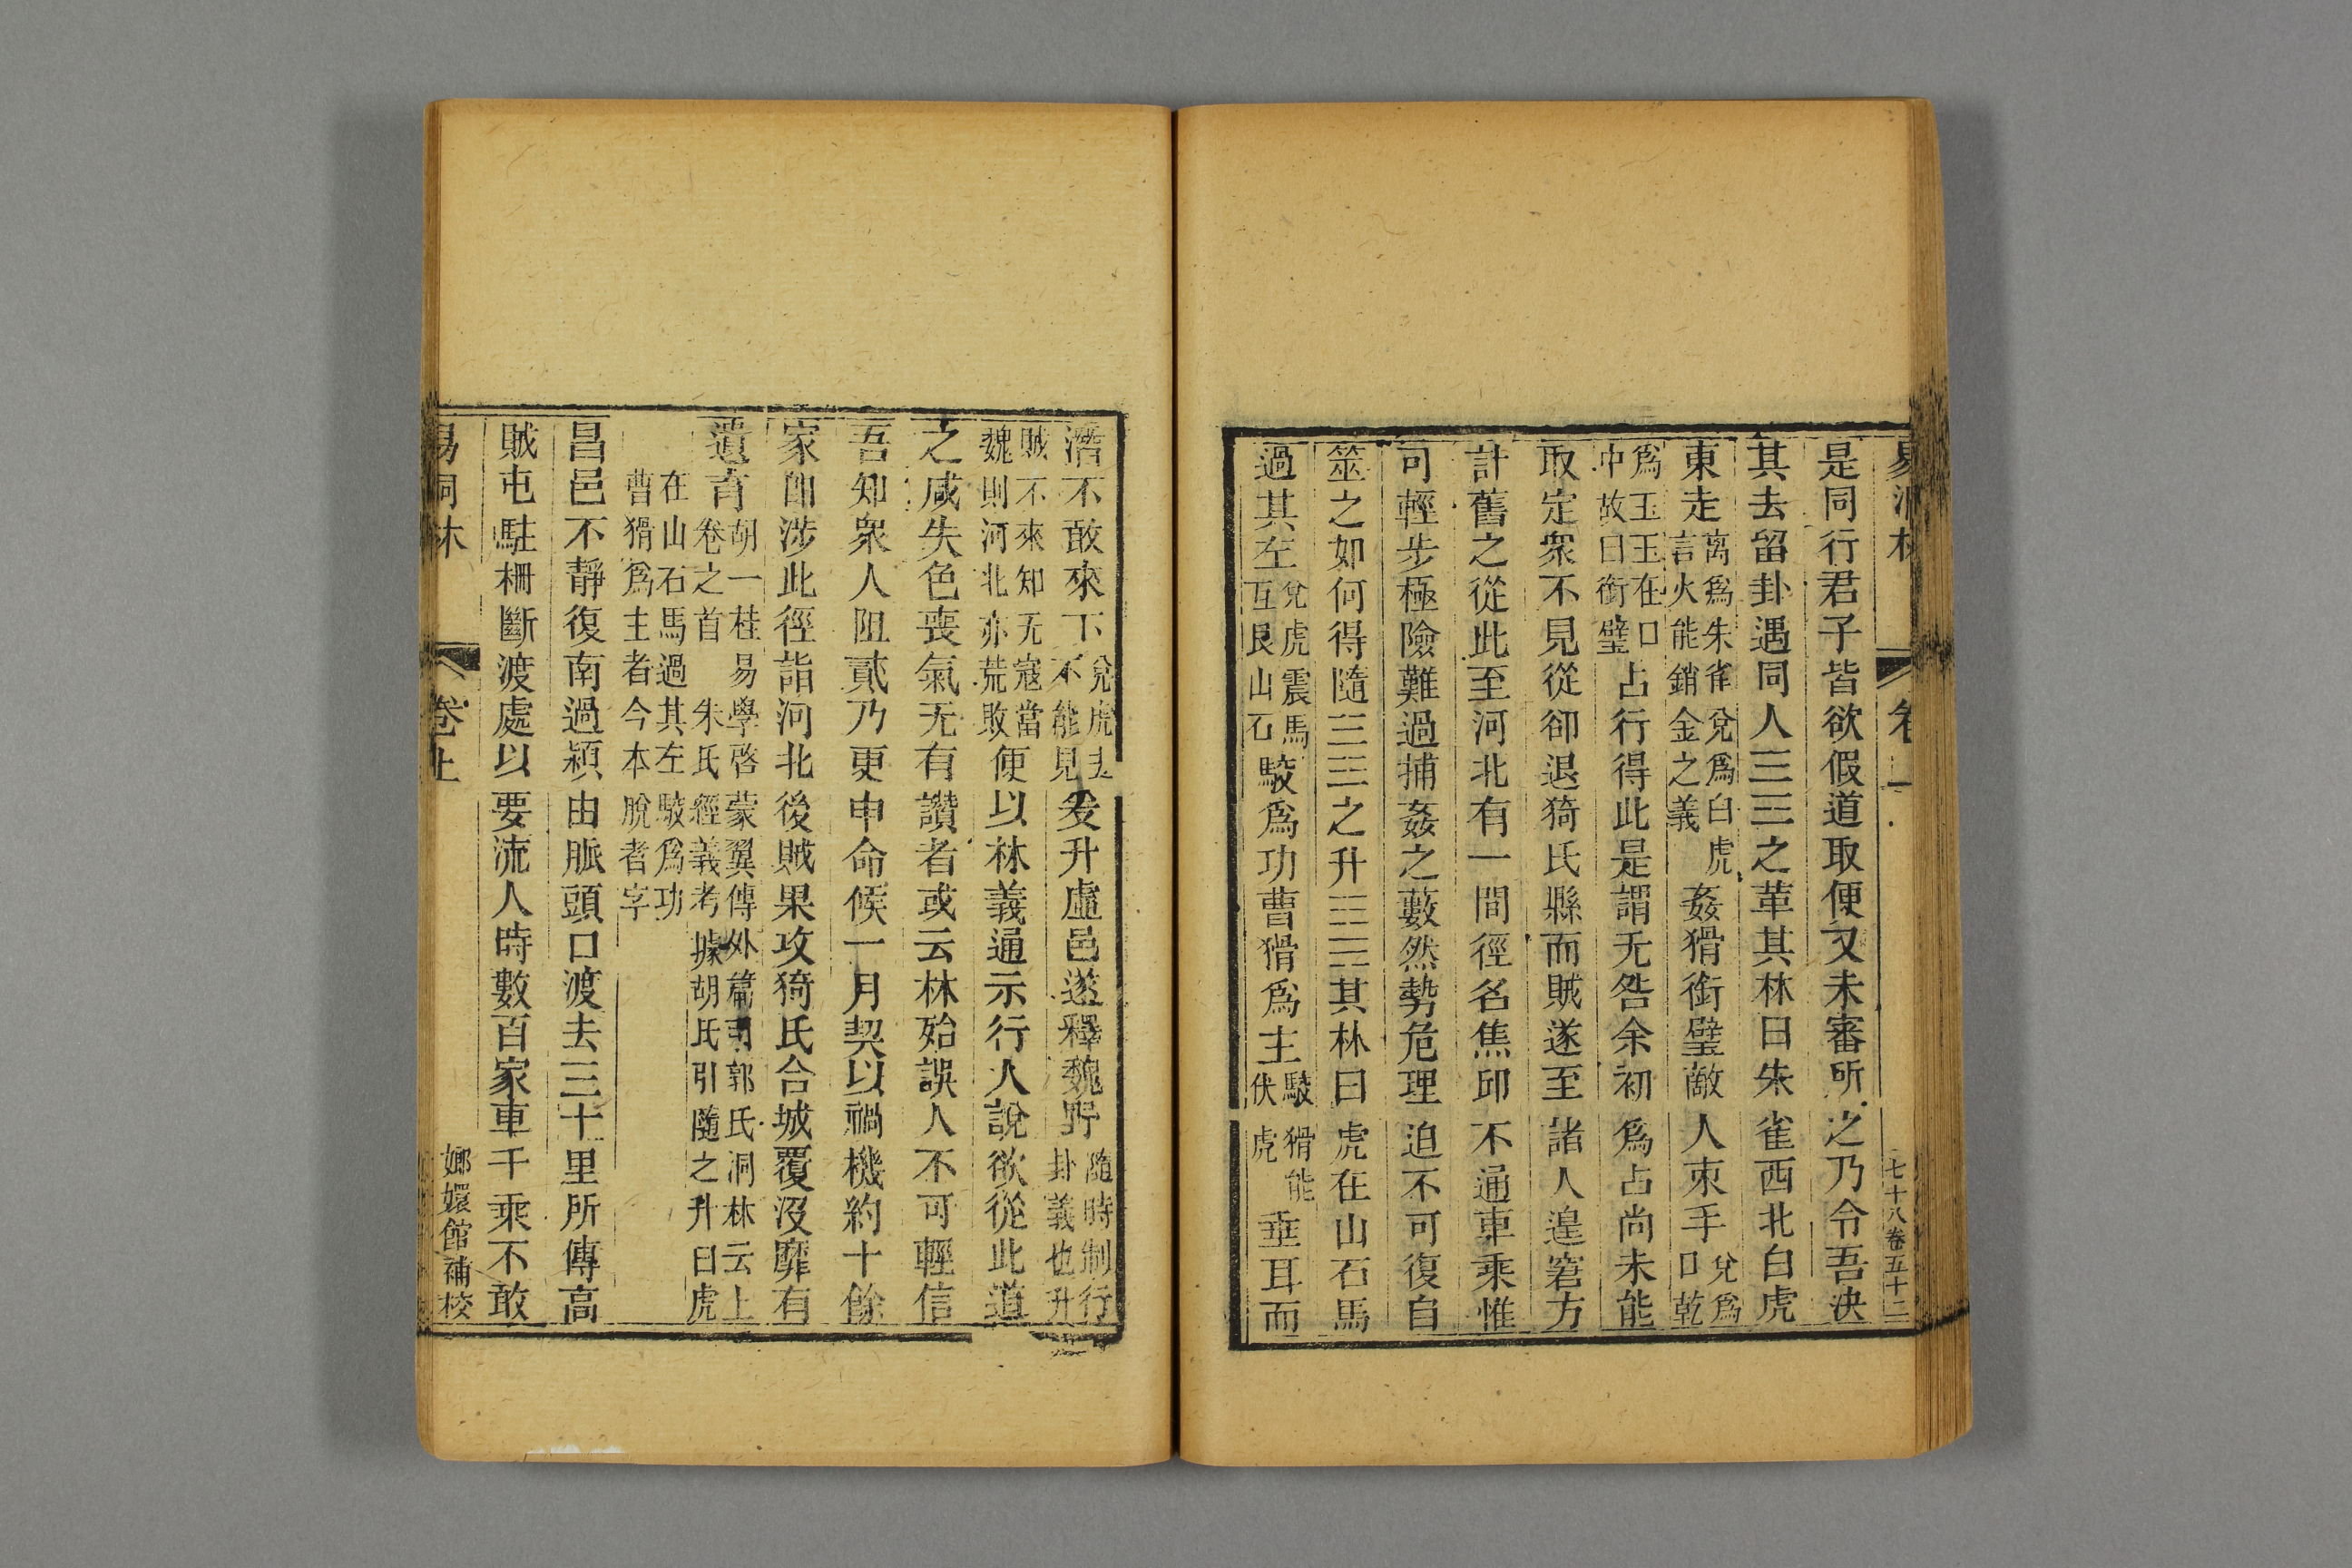 七十八卷五十二
是同行君子皆欲假道取便又未審所之乃令吾決
其去留卦遇同人之革其林曰朱雀西北白虎
東走離爲朱雀兌爲白虎言火能銷金之義姦猾銜璧敵人束手兌爲口乾
爲玉玉在口中故曰銜璧占行得此是謂无咎余初爲占尚未能
取定衆不見從卻退猗氏縣而賊遂至諸人遑窘方
計舊之從此至河北有一間徑名焦邱不通車乘惟
可輕步極險難過捕姦之藪然勢危理迫不可復自
筮之如何得隨之升其林曰虎在山石馬
過其左兌虎震馬互艮山石駮爲功曹猾爲主駮猾能伏虎垂耳而
潛不敢來下兌虎去不能見爰升虛邑遂釋魏野隨時制行卦義也升
賊不來知无寇當魏則河北亦荒敗便以林義通示行人說欲從此道
之咸失色喪氣无有讚者或云林殆誤人不可輕信
吾知衆人阻貳乃更申命候一月契以禍機約十餘
家卽涉此徑詣河北後賊果攻猗氏合城覆没靡有
遺育胡一桂易學啓蒙翼傳外篇引郭氏洞林云上卷之首 朱氏經義考據胡氏引隨之升曰虎
在山石馬過其左駮爲功曹猾爲主者今本脫者字
昌邑不靜復南過潁由脈頭口渡去三十里所傳高
賊屯駐柵斷渡處以要流人時數百家車千乘不敢
易洞林 卷上 嫏嬛館補校